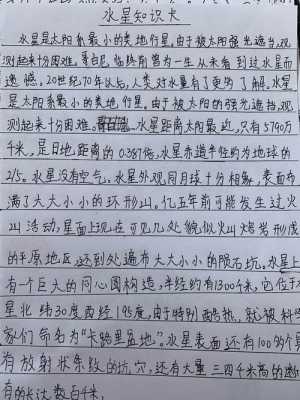 水星知识大
水星是太阳系最小的类地行星,由于被太阳强光遮当,观
测起来十分困难。哥白尼临终前曾为一生从未看到过水星而
遗憾。20世纪70年以后,人类对水星有了更多了解。水星
是太阳系最小的类地行星。由于被太阳的强光遮挡,观
测起来十分困难。水星距离太阳最近,只有5790万
千米,是日地距离的0.387倍,水星赤道半径约为地球的
2/5。水星没有空气。水星外观同月球十分相象,表面布
满了大大小小的环形山。亿五年前可能发生过火
山活动,星面上现在可见几处貌似火山熔岩形成
的平原地区,达到处遍布大大小小的陨石坑。水星上
有一个巨大的同心圆构造,半径约有1300千米,它位于水
星北纬30度西经195度,由于特别酷热,就被科学
家们命名为"卡路里盆地"。水星表面还有100多个具
有放射状条纹的坑穴,还有大量三四千米高的断
有的长达数百千米,